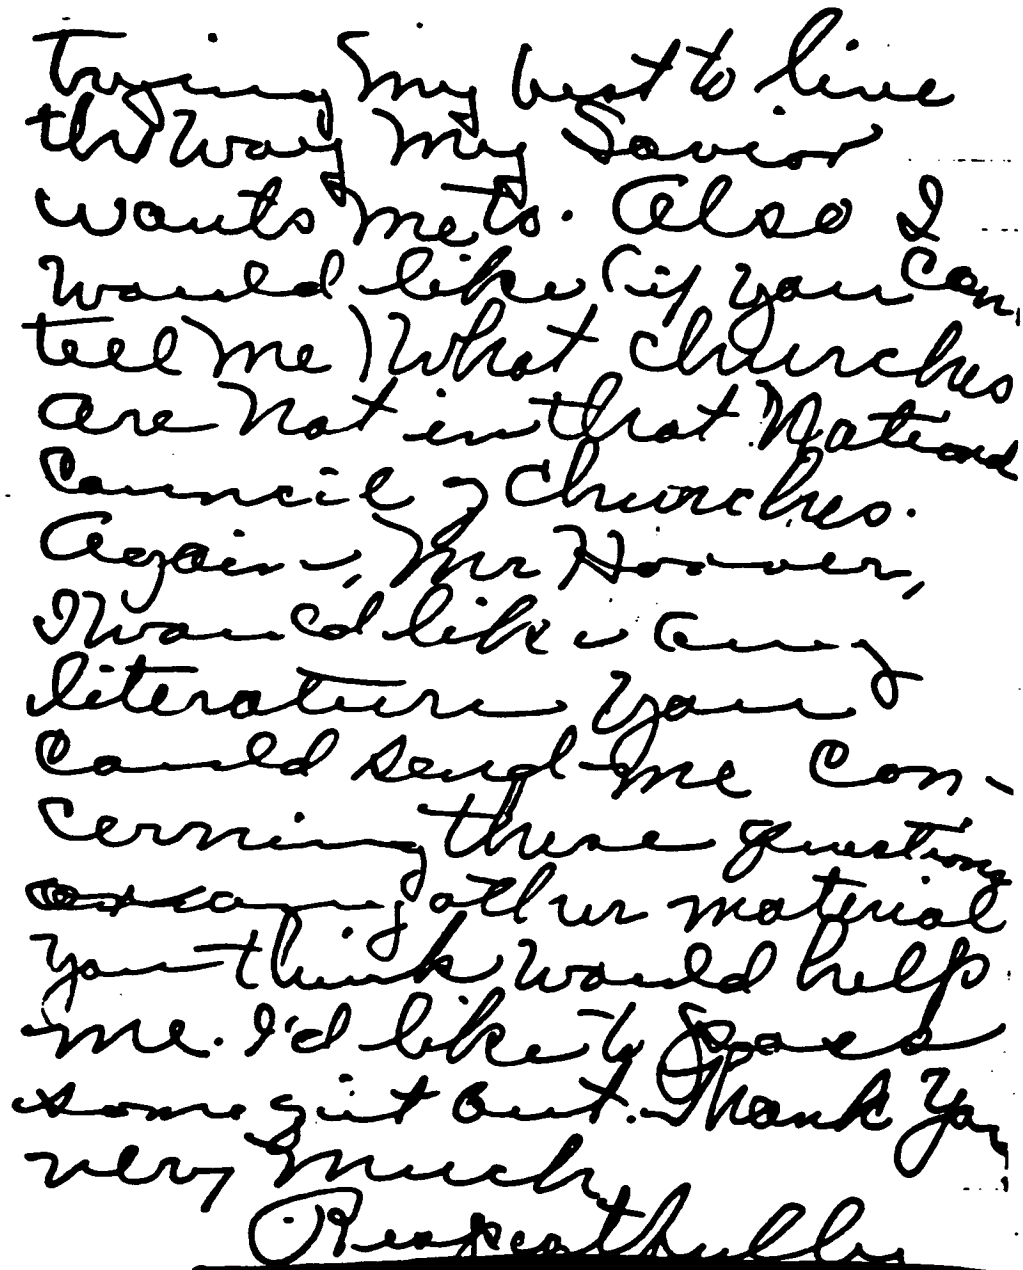 Trying my best to live
the way my Savior
wants me to. Also I
would like (if you can
tell me) what churches
are not in that National
Council of Churches.
Again, Mr Hoover,
I would like any
literature you
could send me con-
cerning these questions
or any other material
you think would help
me. I'd like to pass
some of it out. Thank you
very much,
Respectfully